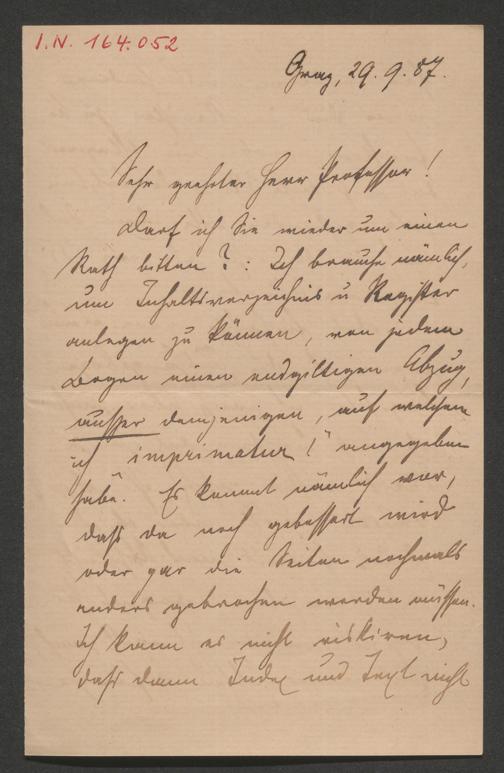 I.N. 164.052
Graz, 29. 9. 87.
Sehr geehrter Herr Professor!
Darf ich Sie wieder um einen
Rath bitten? : Ich brauche nämlich,
um Inhaltsverzeichnis u Register
anlegen zu können, von jedem
Bogen einen endgiltigen Abzug,
ausser demjenigen, auf welchem
ich imprimatur! angegeben
habe. Es kommt nämlich vor,
dass da noch gebessert wird
oder gar die Seiten nochmals
anders gebrochen werden müssen.
Ich kann es nicht riskiren,
dass dann Index und Text nicht